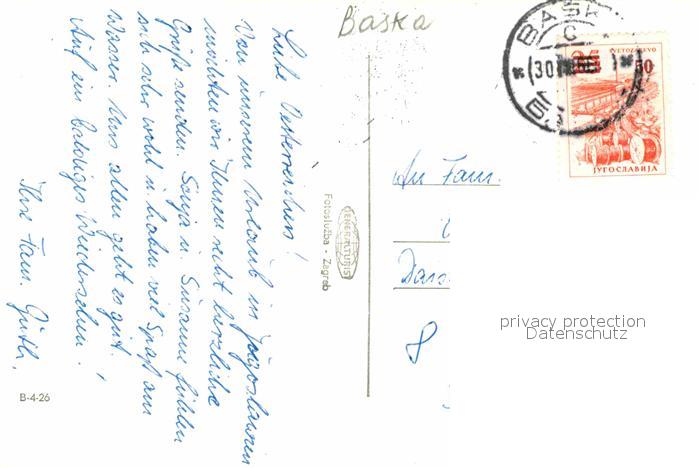 Baska
Liebe Oesterreichers!
Von unserem Urlaub in Jugoslawien
möchten wir Ihnen recht herzliche
Grüße senden. Sonja u. Susanne fühlen
sich sehr wohl u. haben viel Spaß am
Wasser. Uns allen geht es gut.
Auf ein baldiges Wiedersehen!
Ihre Fam.
B-4-26
GENERALTURIST
Fotoslužba - Zagreb
An Fam.
8
BAŠK
C
(30
SVETOZAREVO
50
ЈУГОСЛАВИЈА
privacy protection
Datenschutz